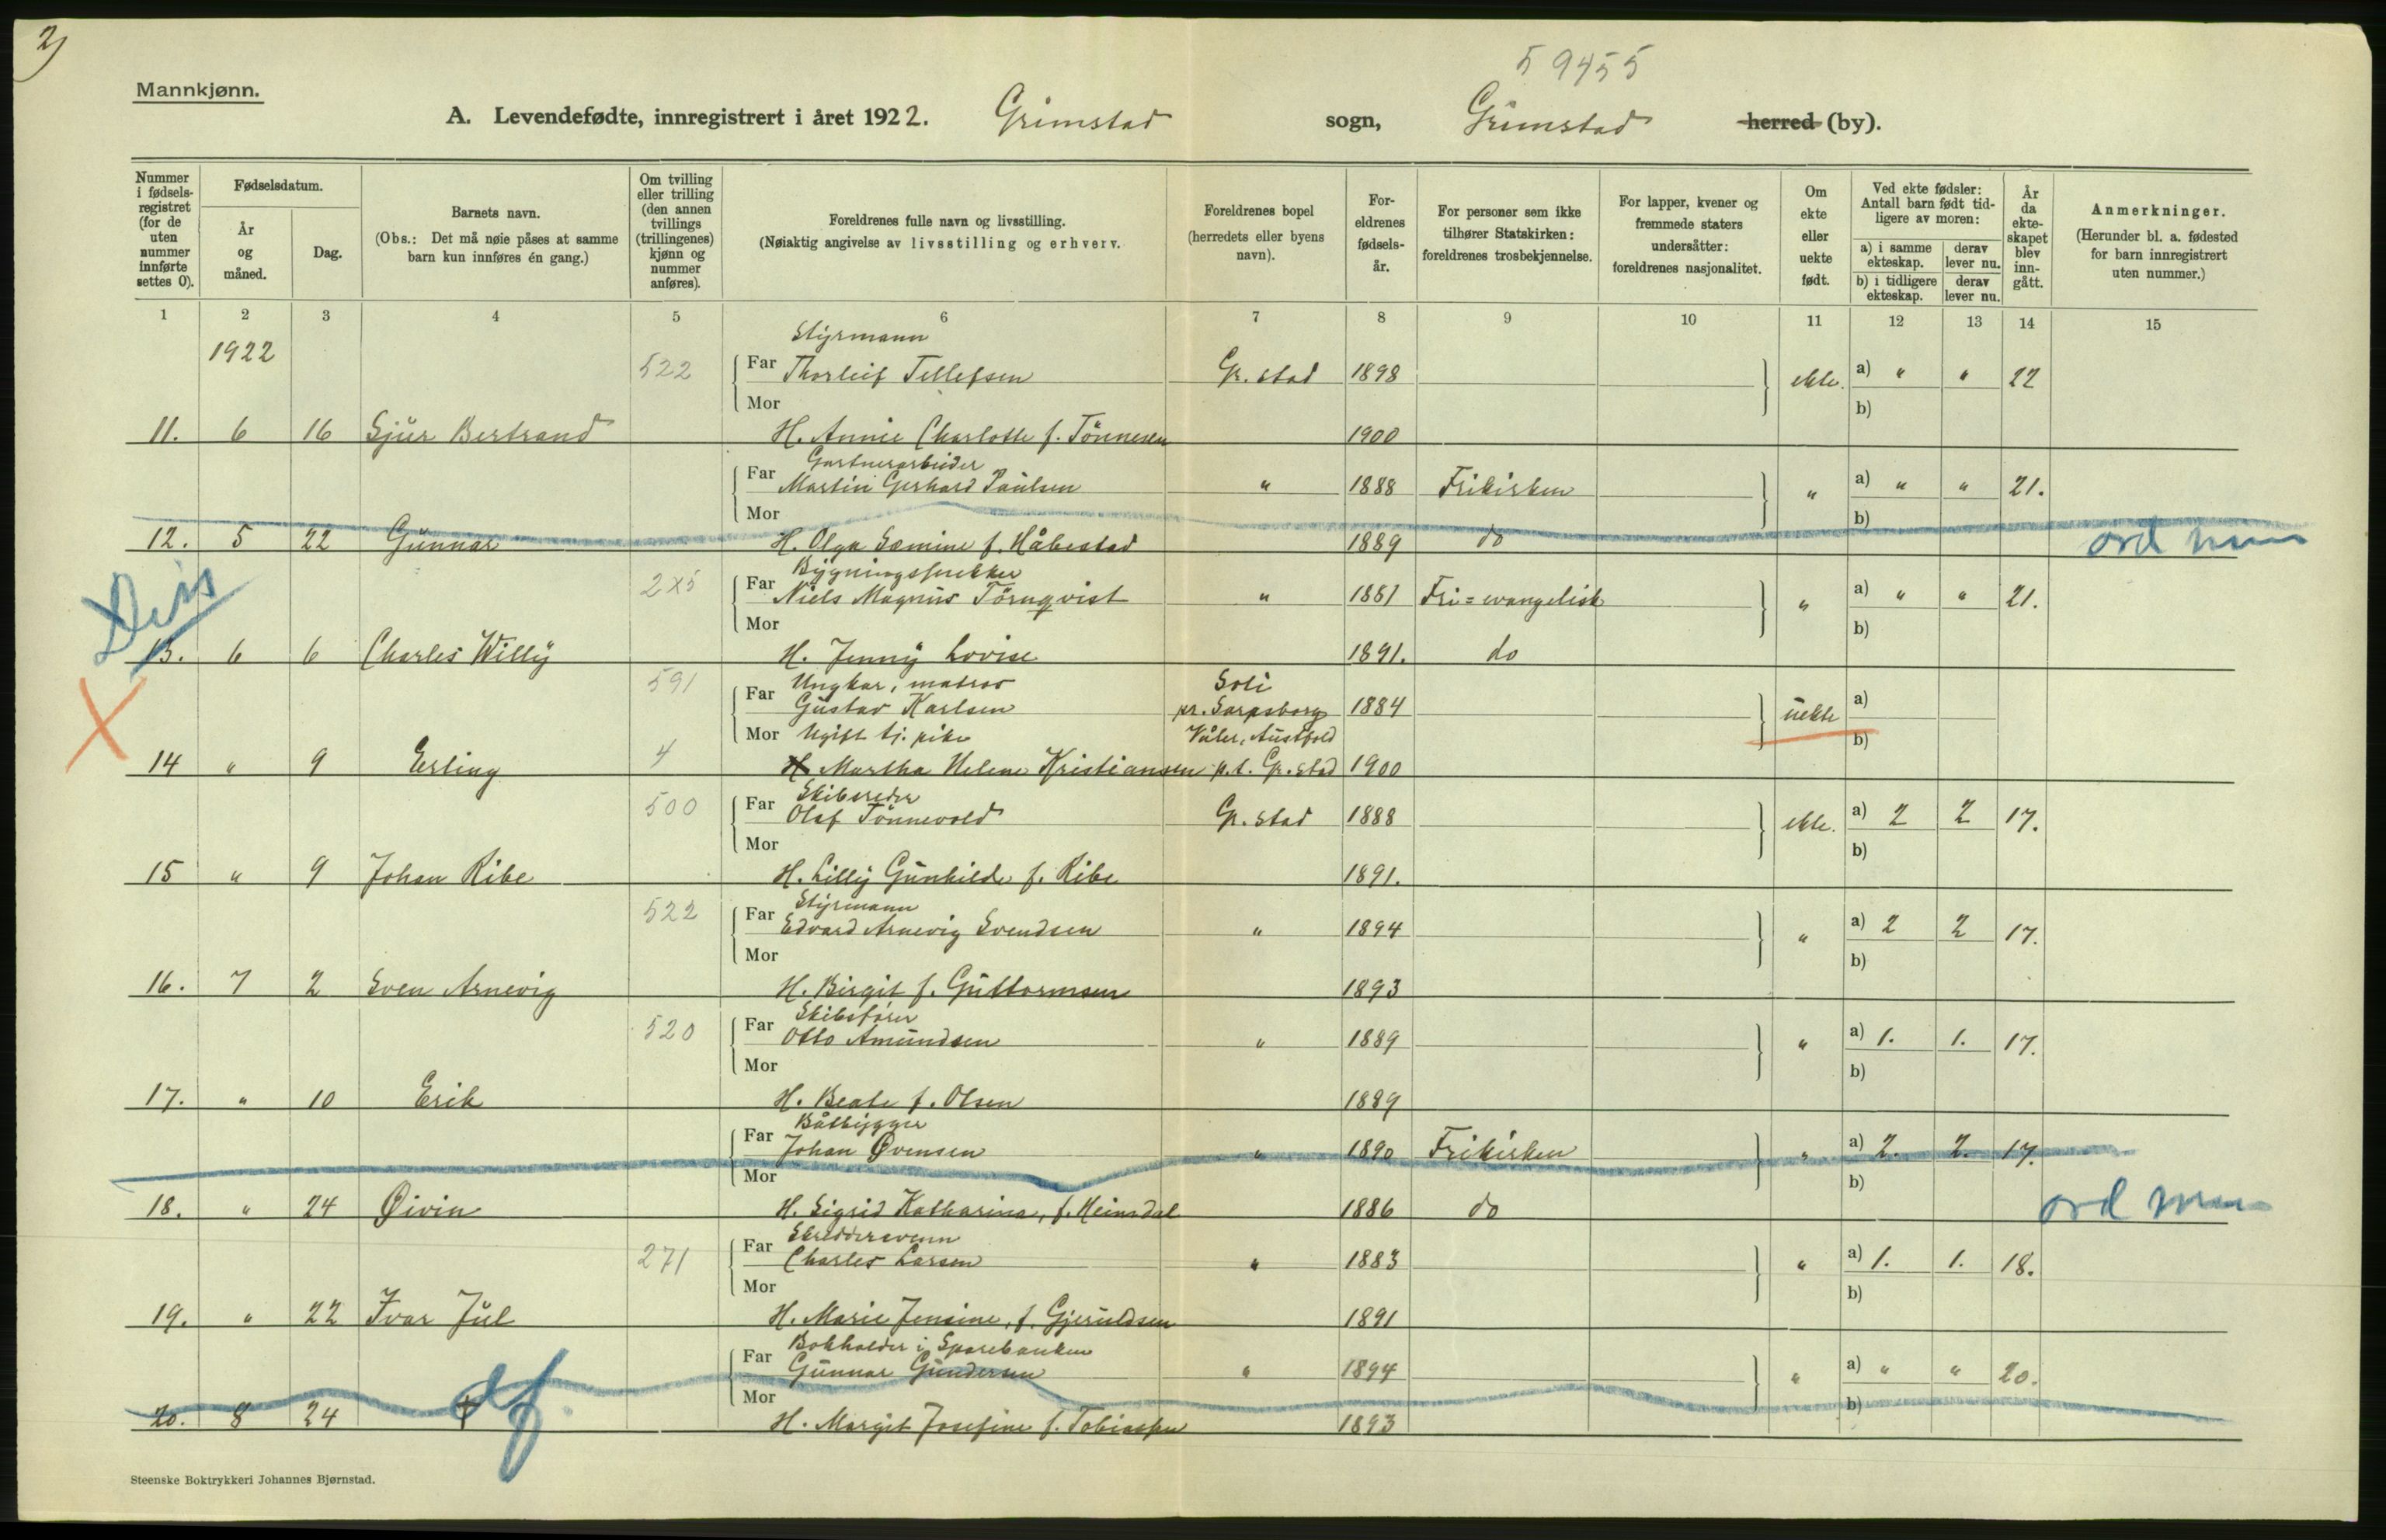 2)
59455
Mannkjønn.
A. Levendefødte, innregistrert i året 1922. Grimstad sogn, Grimstad herred (by).
Nummer i fødselsregistret (for de uten nummer innførte settes 0).
Fødselsdatum.
År og måned.
Dag.
Barnets navn.
(Obs.: Det må nøie påses at samme barn kun innføres én gang.)
Om tvilling eller trilling (den annen tvillings (trillingenes) kjønn og nummer anføres).
Foreldrenes fulle navn og livsstilling.
(Nøiaktig angivelse av livsstilling og erhverv.
Foreldrenes bopel (herredets eller byens navn).
Foreldrenes fødselsår.
For personer som ikke tilhører Statskirken: foreldrenes trosbekjennelse.
For lapper, kvener og fremmede staters undersåtter: foreldrenes nasjonalitet.
Om ekte eller uekte født.
Ved ekte fødsler: Antall barn født tidligere av moren:
a) i samme ekteskap.
derav lever nu.
b) i tidligere ekteskap.
derav lever nu.
År da ekteskapet blev inngått.
Anmerkninger.
(Herunder bl. a. fødested for barn innregistrert uten nummer.)
1 2 3 4 5 6 7 8 9 10 11 12 13 14 15
1922
Styrmann
522 Far Thorleif Tellefsen Gr.stad 1898 ekte. a) " " 22
Mor b)
11. 6 16 Sjur Bertrand H. Annie Charlotte f. Tønnesen 1900
Gartnerarbeider
Far Martin Gerhard Paulsen " 1888 Frikirken " a) " " 21.
Mor b)
12. 5 22 Gunnar H. Olga Semine f. Håbestad 1889 do
Diss
Bygningssnekker
2x5 Far Niels Magnus Törnqvist " 1881 Fri=evangelisk " a) " " 21.
Mor b)
13. 6 6 Charles Willy H. Jenny Lovise 1891. do
Ungkar, matros Soli
591 Far Gustav Karlsen pr. Sarpsborg 1884 uekte a)
Mor Ugift tj. pike Våler, Austfold b)
14 " 9 Erling 4 H Martha Helene Kristiansen p.t. Gr.stad 1900
Skibsreder
500 Far Olaf Tønnevold Gr.stad 1888 ekte. a) 2 2 17.
Mor b)
15 " 9 Johan Ribe H. Lilly Gunhilde f. Ribe 1891.
Styrmann
522 Far Edvard Arnevig Svendsen " 1894 " a) 2 2 17.
Mor b)
16. 7 2 Sven Arnevig H. Birgit f. Guttormsen 1893
Skibsfører
520 Far Otto Amundsen " 1889 " a) 1. 1. 17.
Mor b)
17. " 10 Erik H. Beate f. Olsen 1889
Båtbygger
Far Johan Øvensen " 1890 Frikirken " a) 2. 2. 17.
Mor b)
18. " 24 Øivin H. Sigrid Katharina, f. Heimdal 1886 do
Skreddersvenn
271 Far Charles Larsen " 1883 " a) 1. 1. 18.
Mor b)
19. " 22 Ivar Jul H. Marie Jensine, f. Gjeruldsen 1891
Bokholder i Sparebanken
Far Gunnar Gundersen " 1894 " a) " " 20.
Mor b)
20. 8 24 † df. H. Margit Josefine f. Tobiassen 1893
Steenske Boktrykkeri Johannes Bjørnstad.